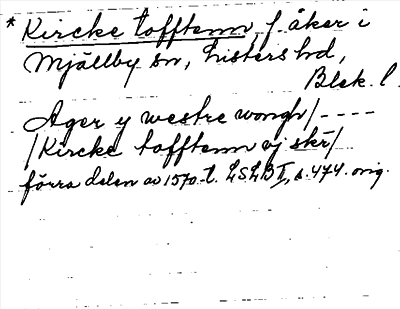 * Kircke tofftenn, f. åker i
Mjällby sn, Listers hd,
Blek. l.
Ager y westre wongh /----
/Kircke tofftenn ej skr/
förra delen av 1570-t. LSLB II, s. 474. orig.